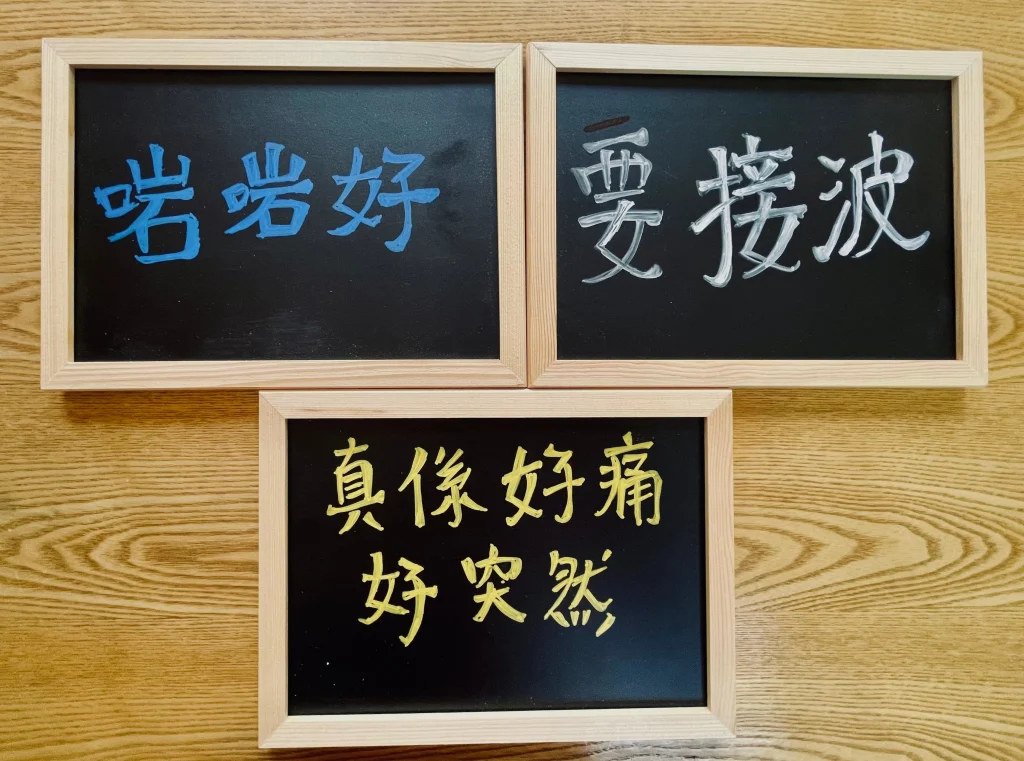 啱啱好
要接波
真係好痛
好突然